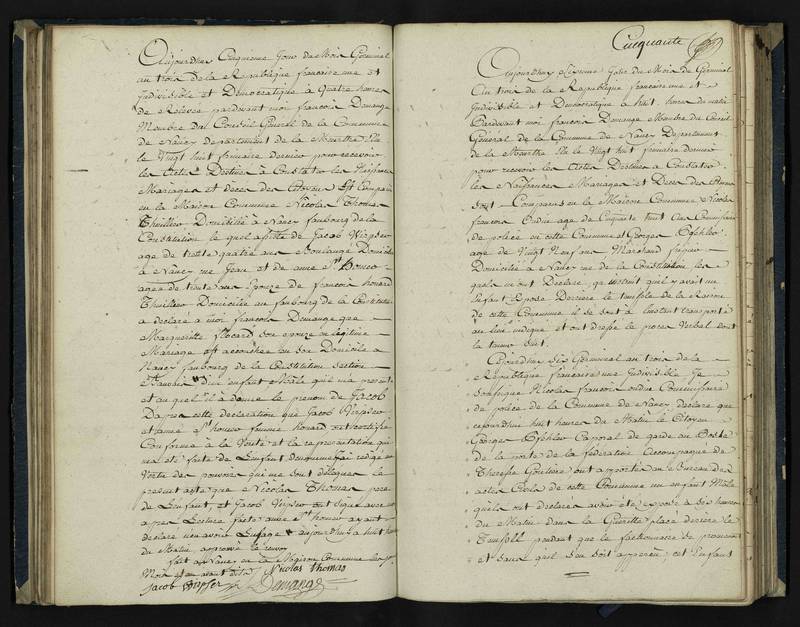 Aujourdhuy Cinquieme Jour du Mois Germinal
an trois de la Republique francoise une Et
Indivisible et Democratique a Quatre heures
de Relevée pardevant moi francois Demange
Membre du Conseil General de la Commune
de Nancy Departement de la Meurthe Elu
le Vingt huit frimaire dernier pour recevoir
les Actes Destines a Constater les Naissances
Mariages et deces des Citoyens Est Comparu
en la Maison Commune Nicolas Thomas
Thuillier Domicilié a Nancy faubourg de la
Constitution le quel assisté de Jacob
age de trente quatre ans Boulanger Domicilié
a Nancy rue Jean et de anne
agee de trente ans Epouze de francois houard
Thuillier Domiciliée au faubourg de la Constitution
a declaré a moi francois Demange que
Margueritte son epouze en légitime
Mariage est accouchée en son Domicile a
Nancy faubourg de la Constitution Section
d'un enfant Male qui ma presenté
et au quel il a donné le prenom de Jacob
Dapres cette declaration que Jacob
et anne femme houard ont certifiée
Conforme a la Verité et la representation qui
ma été faite de Lenfant denommé Jai redigé en
Vertu des pouvoirs qui me sont délegués le
present acte que Nicolas Thomas pere
de Lenfant, et Jacob ont signé avec moi
apres Lecture faite anne ayant
declaré nen avoir Lusage aujourdhuy a huit heures
du Matin approuvé le renvoy
fait a Nancy en la Maison Commune les Jour
Mois et an avant dits Nicolas thomas
Jacob Demange
Cinquante
Aujourdhuy Sixieme Jour du Mois de Germinal
an trois de la Republique francoise une et
Indivisible et Democratique a huit heures du matin
Pardevant moi francois Demange Membre du Conseil
General de la Commune de Nancy Departement
de la Meurthe Elu le Vingt huit frimaire dernier
pour recevoir les Actes Destines a Constater
les Naissances Mariages et Deces des Citoyens
Sont Comparus en la Maison Commune Nicolas
francois Oudin age de Cinquante huit ans Commissaire
de police en cette Commune et Georges
age de Vingt Neuf ans Marchand fripier
Domicilié a Nancy rue de la Constitution les
quels mont Declaré, qu quil y avait un
Enfant Exposé Derriere le temple de la Raison
de cette Commune il se sont a linstant transporté
au lieu indiqué et ont dressé le proces Verbal dont
la teneur suit.
Cejourdhui Six Germinal an trois de la
Republique francaise une Indivisible Je
Soussigné Nicolas francois oudin Commissaire
de police de la Commune de Nancy declare que
cejourdhui huit heures du Matin le Citoyen
Georges Caporal de garde au Poste
de la porte de la federation Accompagné de
Therese ont apporté au Bureau des
actes Civils de cette Commune un enfant Male
quels ont declarés avoir été exposé a six heures
du Matin dans la Gueritte placé derriere le
Temple pendant que le factionnaire se promenoit
et sans quil sen soit apperçu, cet Enfant